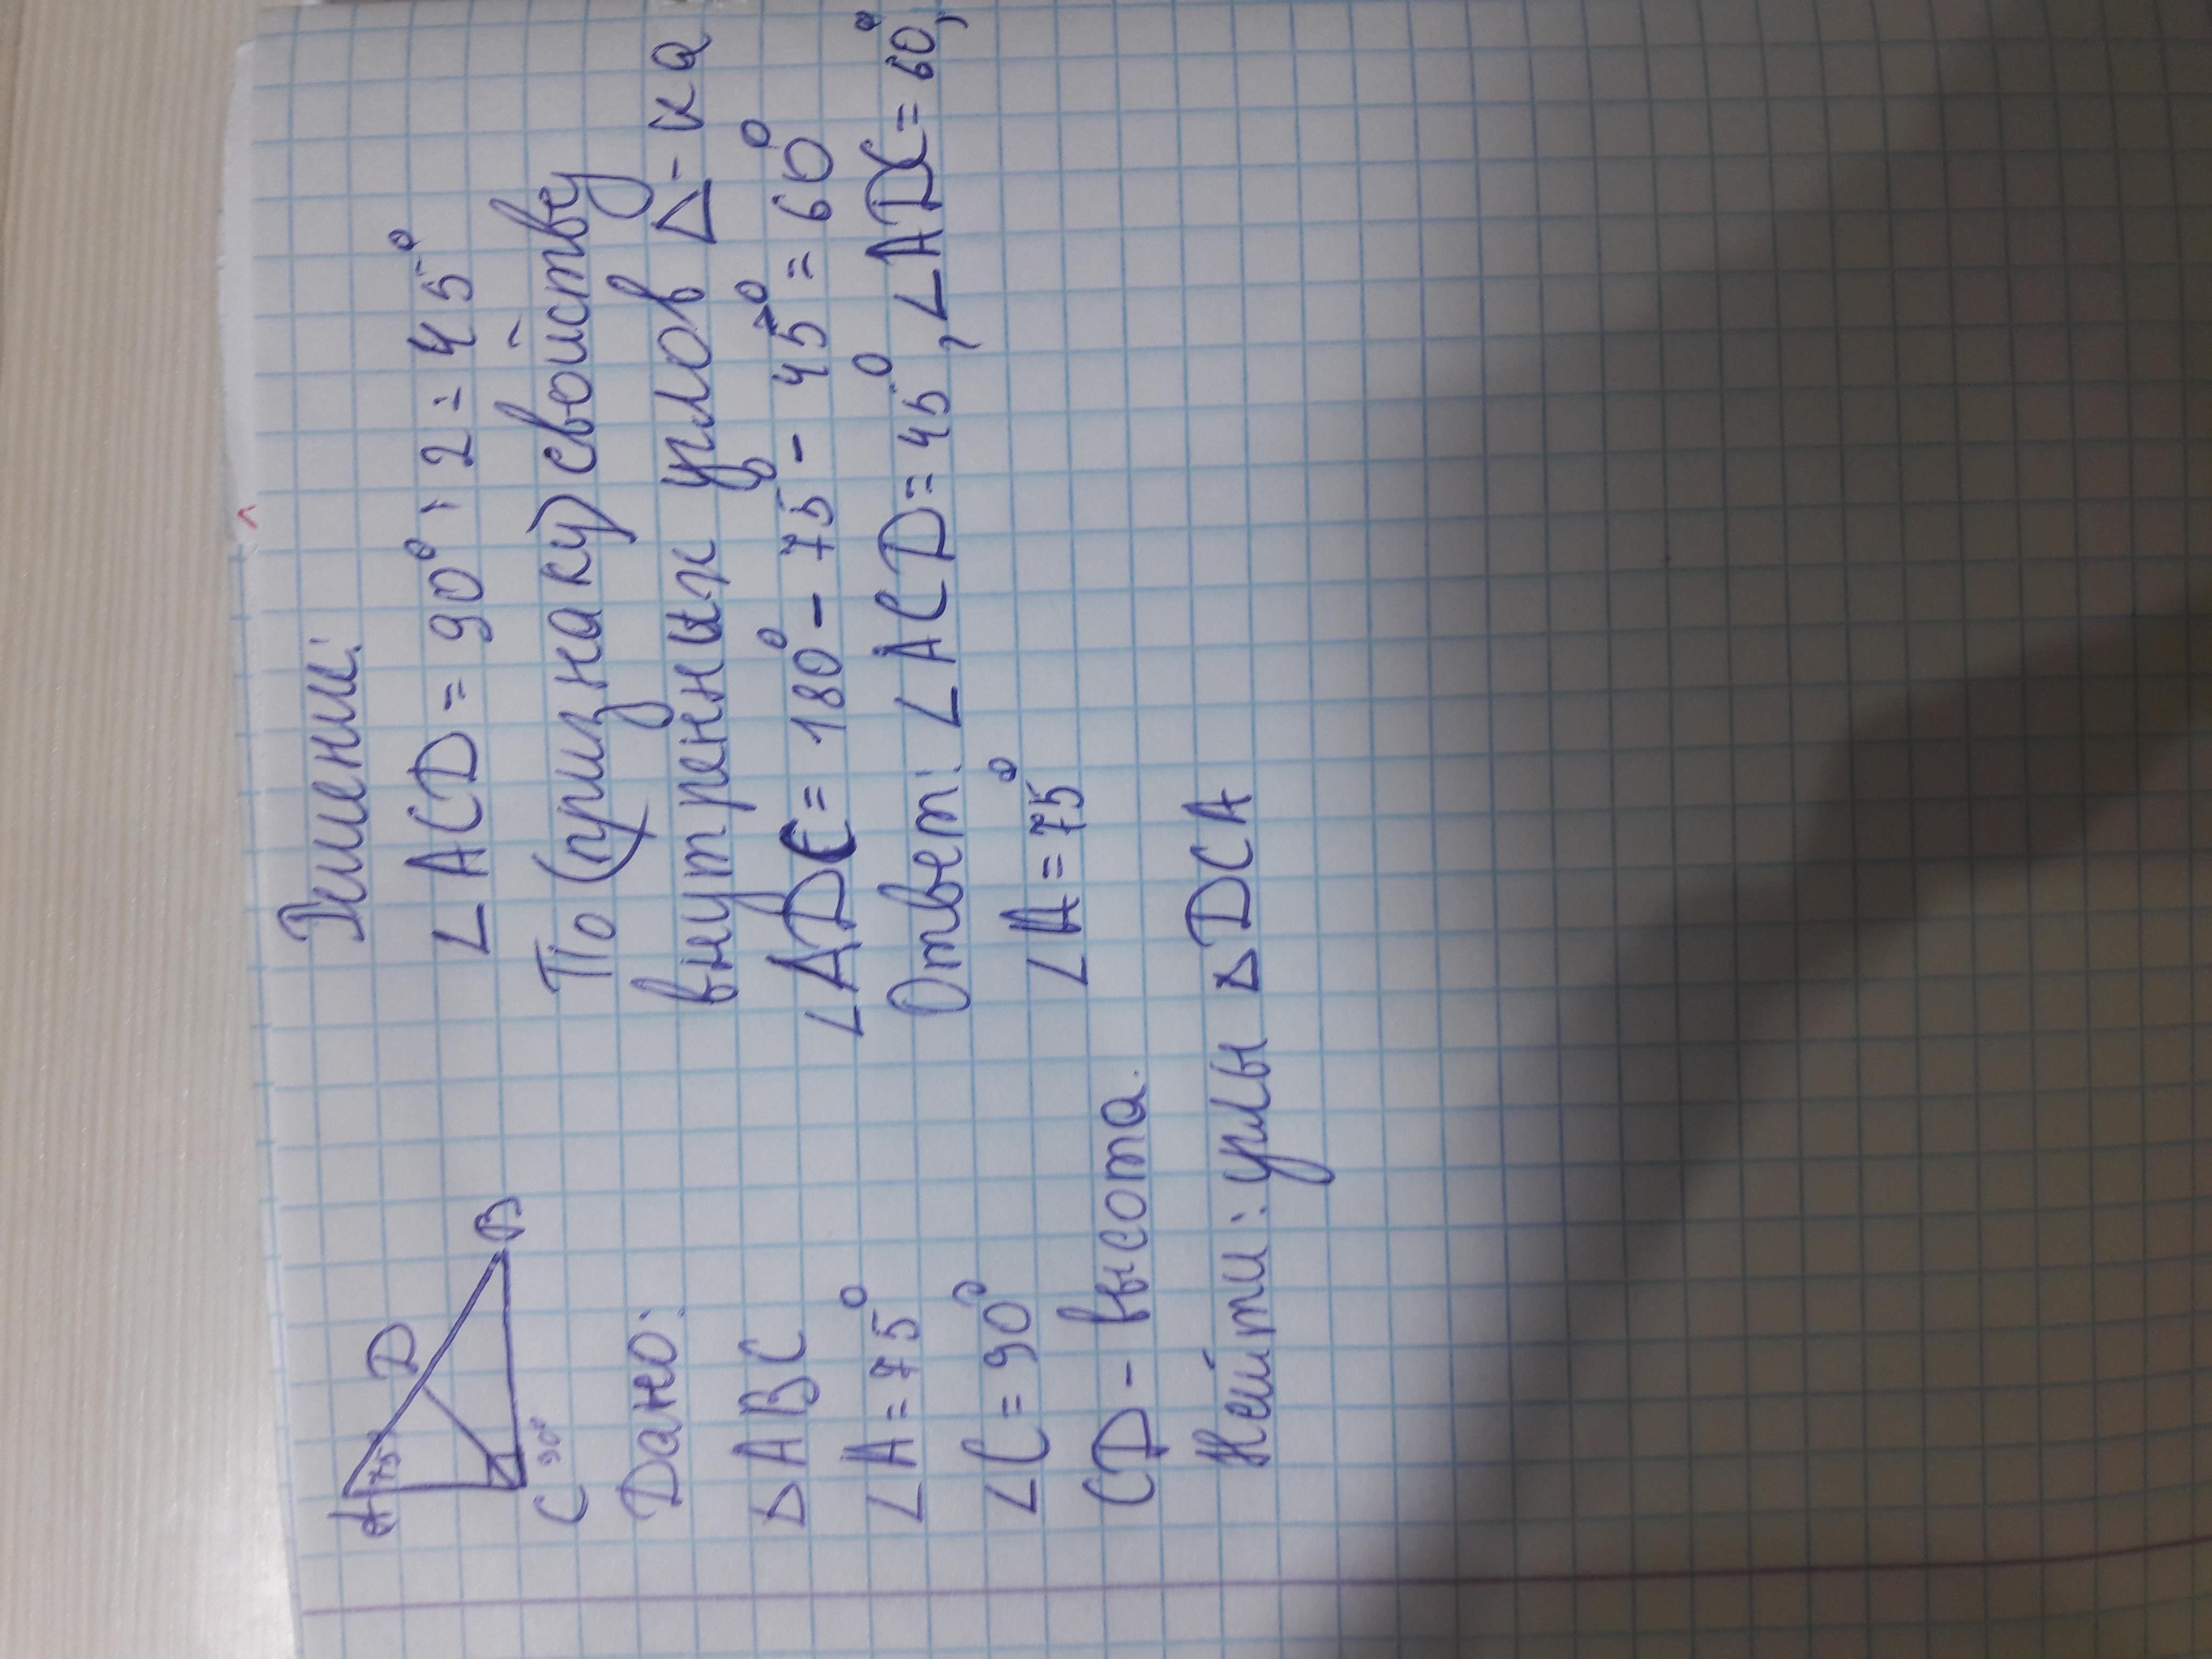 A
D
75°
B
C
90°
Дано:
△ABC
∠A=75°
∠C=90°
CD-высота.
Нейти: углы △DCA
Решении:
∠ACD=90°:2=45°
По (признаку) свойству
внутренних углов △-ка
∠ADC=180°-75°-45°=60°
Ответ: ∠ACD=45°, ∠ADC=60°,
∠A=75°